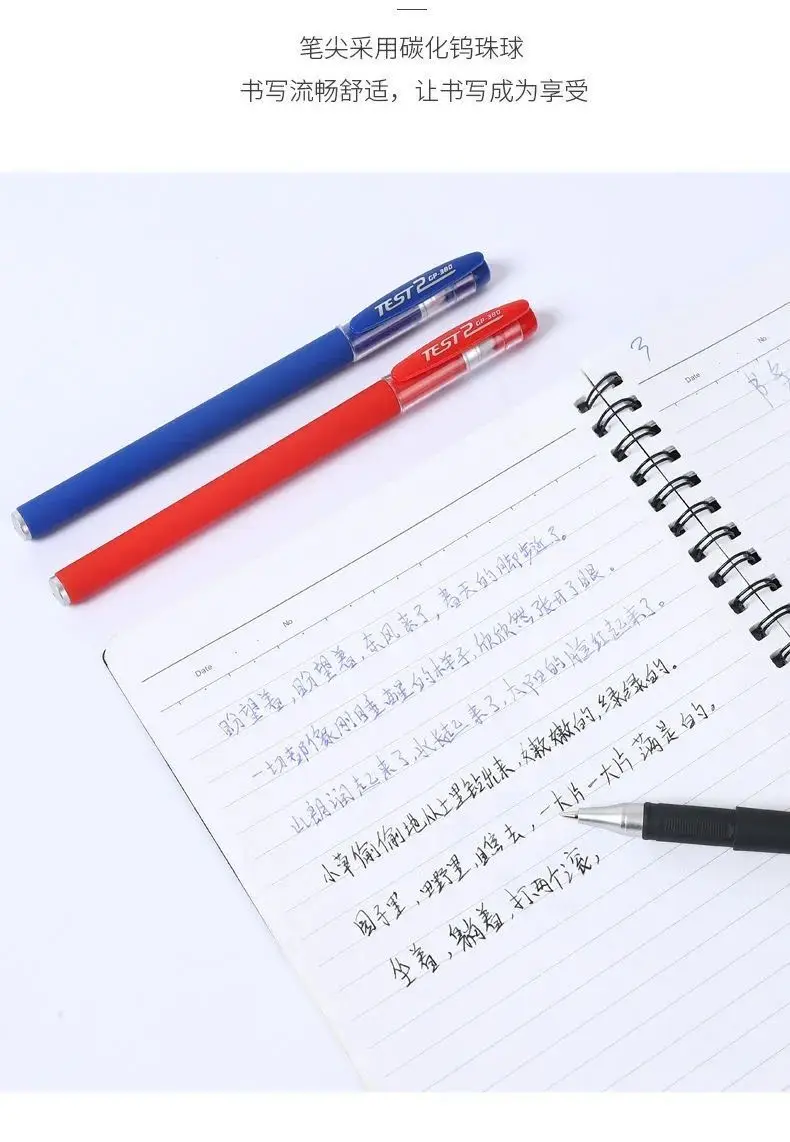 笔尖采用碳化钨珠球
书写流畅舒适，让书写成为享受
TEST 2 GP-380
TEST 2 GP-380
3
Date
No
Date
No
盼望着，盼望着，东风来了，春天的脚步近了。
一切都像刚睡醒的样子，欣欣然张开了眼。
山朗润起来了，水长起来了，太阳的脸红起来了。
小草偷偷地从土里钻出来，嫩嫩的，绿绿的。
园子里，田野里，瞧去，一大片一大片满是的。
坐着，躺着，打两个滚，